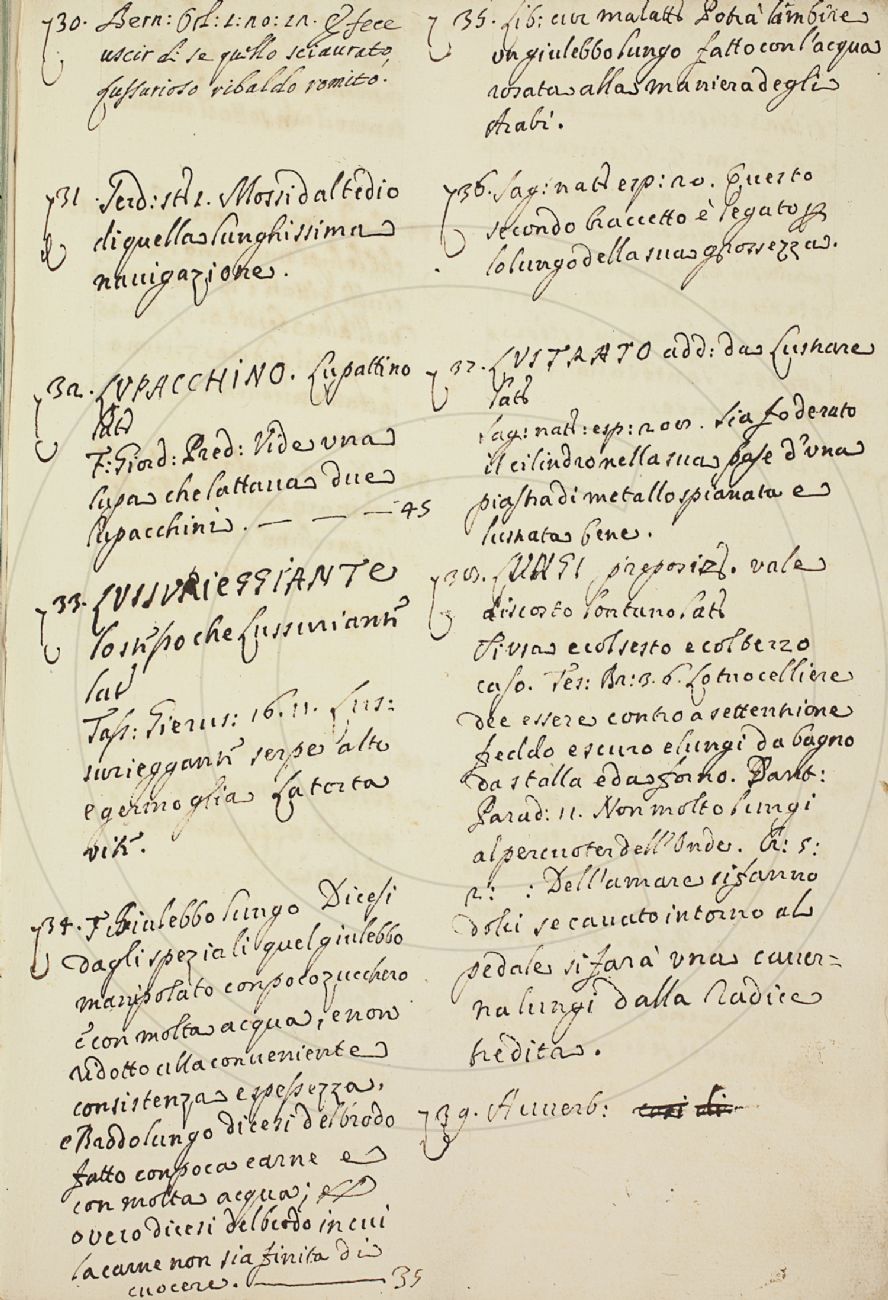 30. Bern: Orl: 1: no: 12. E fece
uscir di se quello sciaurato
Lussurioso ribaldo romito.
31. Serd: st: 1. Mossi dal tedio
di quella lunghissima
nauigazione.
32. LUPACCHINO. Lupattino
lat:
F: Giord: Pred: Vide una
lupa che lattaua due
lupacchini. — — — 45
33. LUSSUREGGIANTE
lo stesso che Lussuriante
lat:
Tass: Gierus: 16. 11. Lus:
sureggiante serpe alto
e germoglia La torta
vite.
34. T Giulebbo lungo Dicesi
dagli speziali quel giulebbo
manipolato con poco zucchero
e con molta acqua, e non
ridotto alla conueniente
consistenza e spessezza,
e Brodo lungo dicesi del brodo
fatto con poca carne e
con molta acqua;
overo dicesi del brodo in cui
la carne non sia finita di
cuocere. — 35
35. Lib: cur malatt: Potrà lambire
un giulebbo lungo fatto con l'acqua
rosata alla maniera degli
Arabi.
36. Sag: nat: esp: 20. Questo
secondo braccetto è legato p
lo lungo della sua grossezza.
37. LUSTRATO add: da Lustrare
lat:
Sag: nat: esp: 208. Sia foderato
il cilindro nella sua base d'una
piastra di metallo spianata e
lustrata bene.
38. LUNGI preposiz:. vale
discosto lontano lat:
Si usa e col sesto e col terzo
caso. Tes: Br: 3. 6. Lo tuo celliere
dee essere contro a settentrione
freddo e scuro e lungi da bagno
da stalla e da forno. Dant:
Parad: 11. Non molto lungi
al percuoter dell'Onde. Cr: 5:
2: : Dell'amare si fanno
dolci se cauato intorno al
pedale si farà una cauer=
na lungi dalla Radice
tre dita.
39. Auuerb: